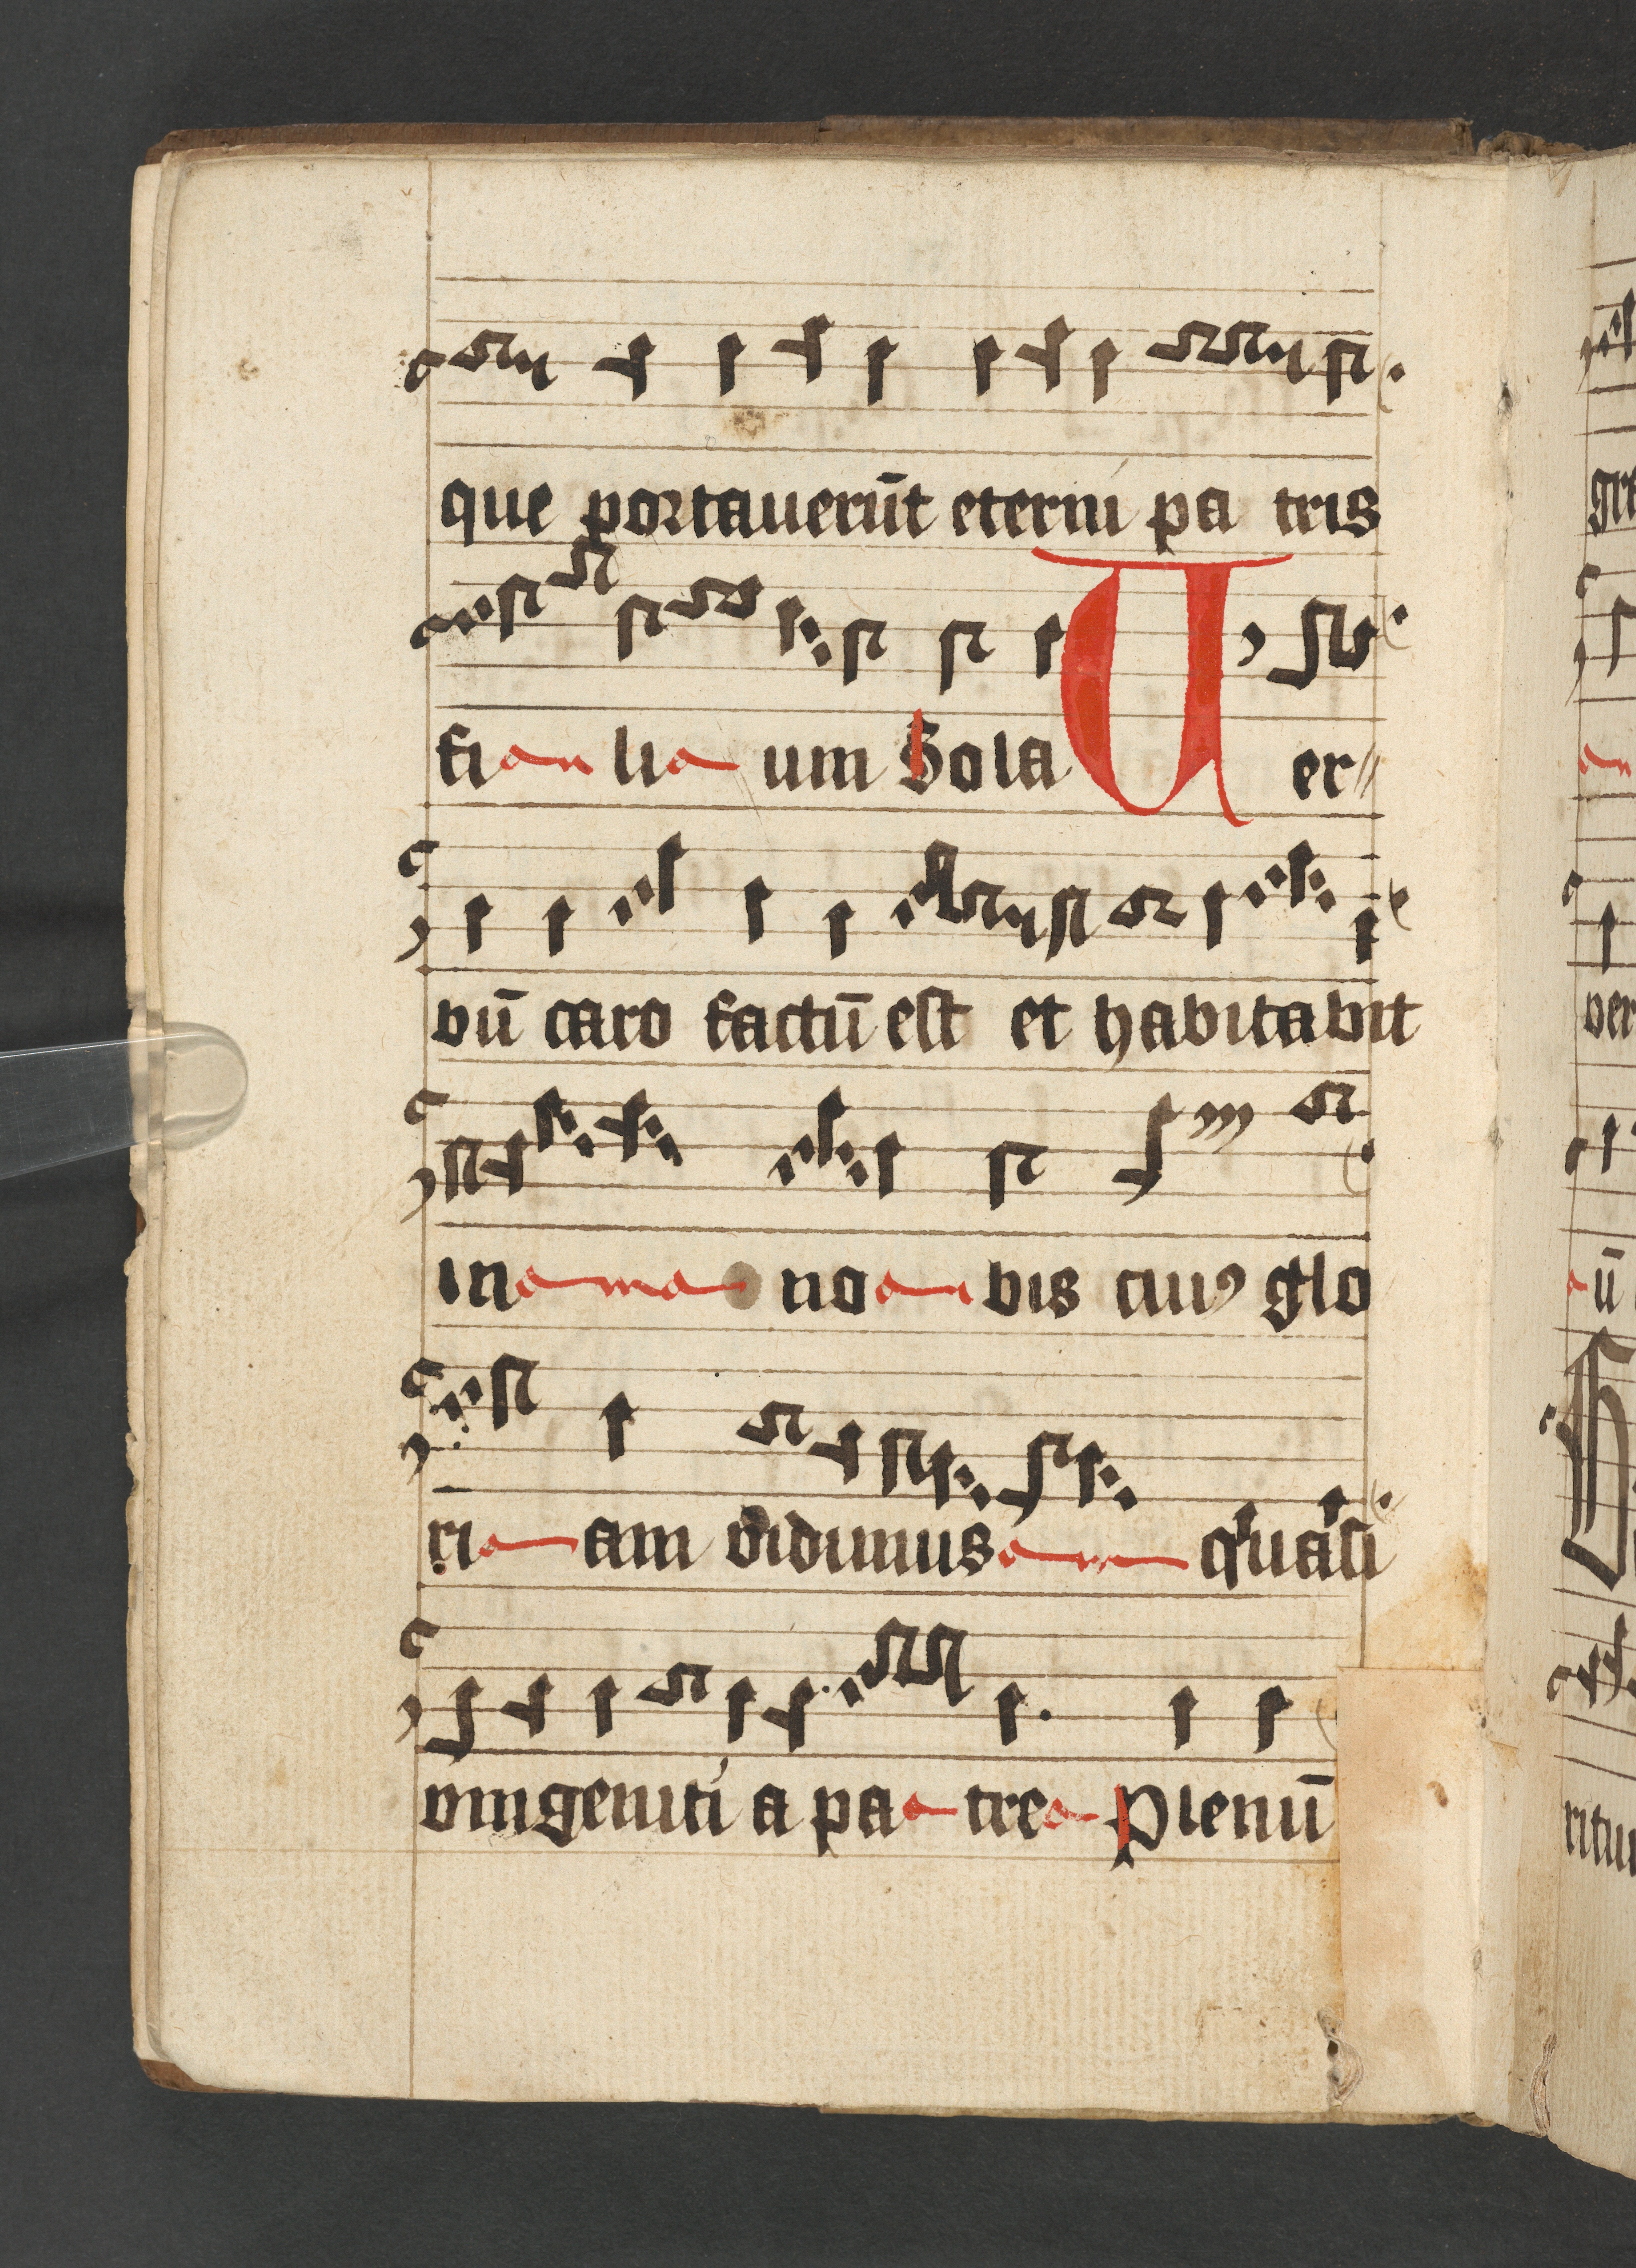 que portauerūt eterni pa tris
fi li um Sola Uer//
bū caro factū est et habitabit
in no bis cuiꝰ glo
ri am vidimus quasi
vnigeniti a pa tre Plenū
gra
ver
ū
ritu